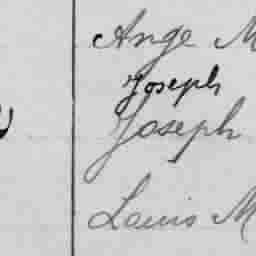 Ange M
Joseph
Joseph
Louis M